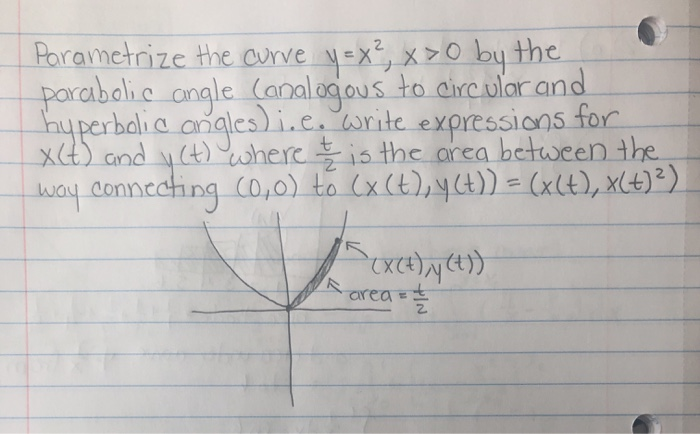 Parametrize the curve y=x², x>0 by the
parabolic angle (analogous to circular and
hyperbolic angles) i.e. write expressions for
x(t) and y(t) where t/2 is the area between the
way connecting (0,0) to (x(t),y(t)) = (x(t), x(t)²)
(x(t),y(t))
area = t/2